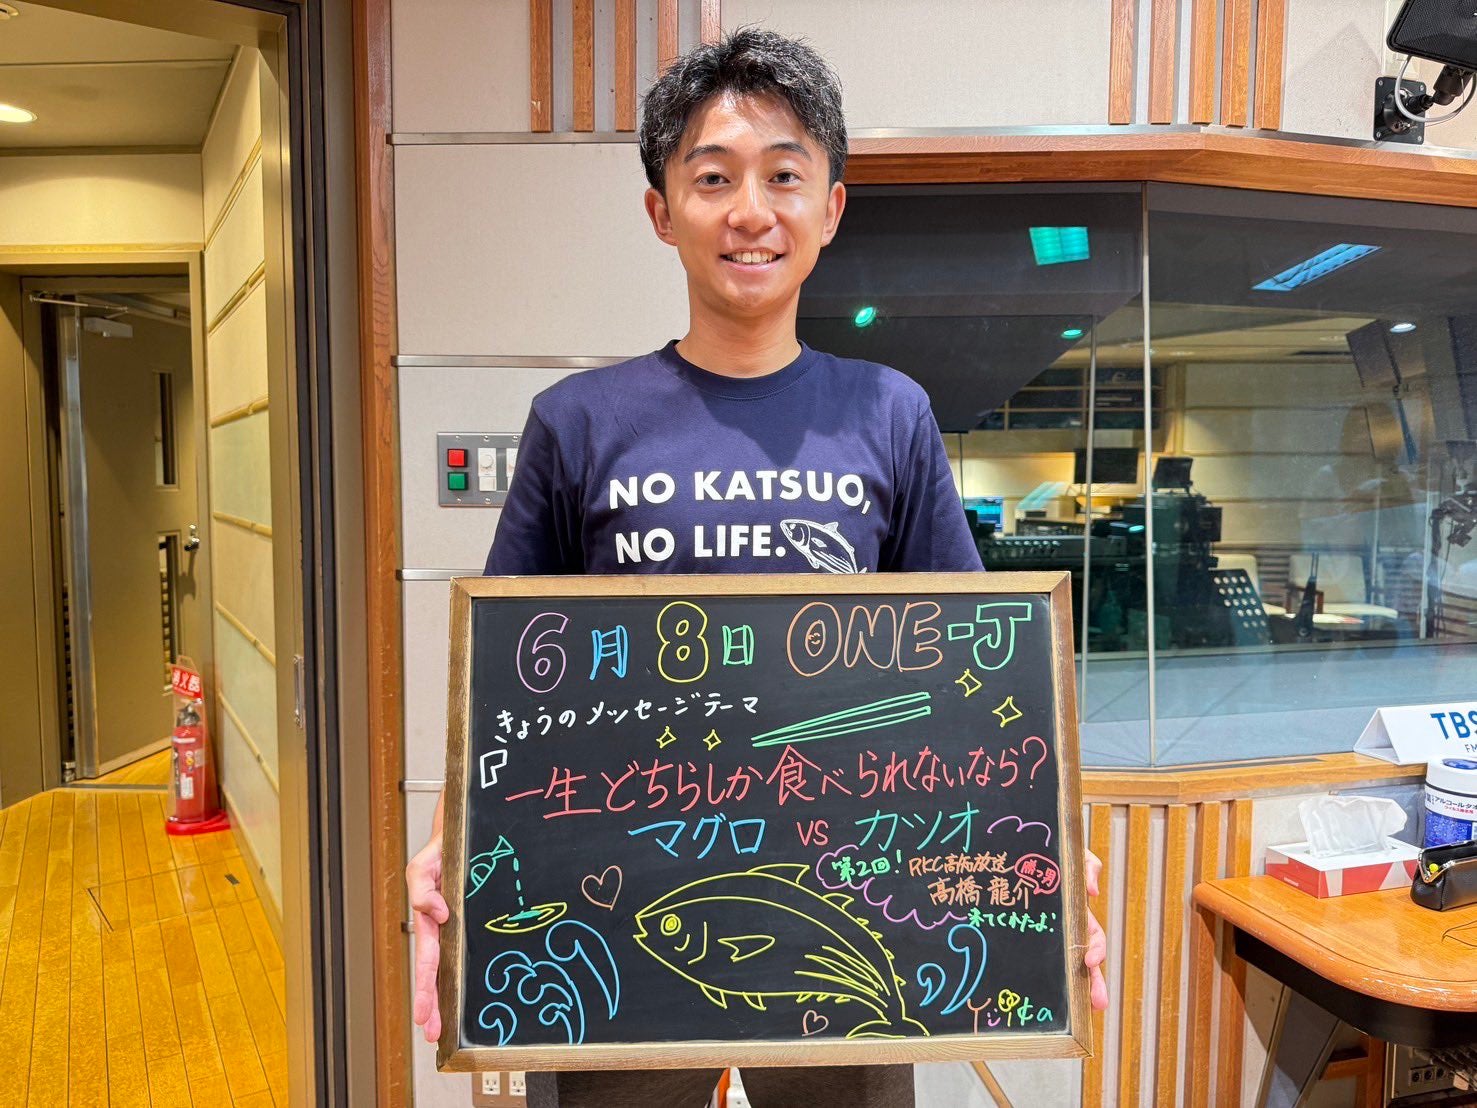 NO KATSUO,
NO LIFE.
6月8日 ONE-J
きょうのメッセージテーマ
『一生どちらしか食べられないなら?
マグロ vs カツオ
第2回! RKC高知放送
高橋 龍介 勝つ男
来てくれたよ!
TBS
FM
アルコールタオ